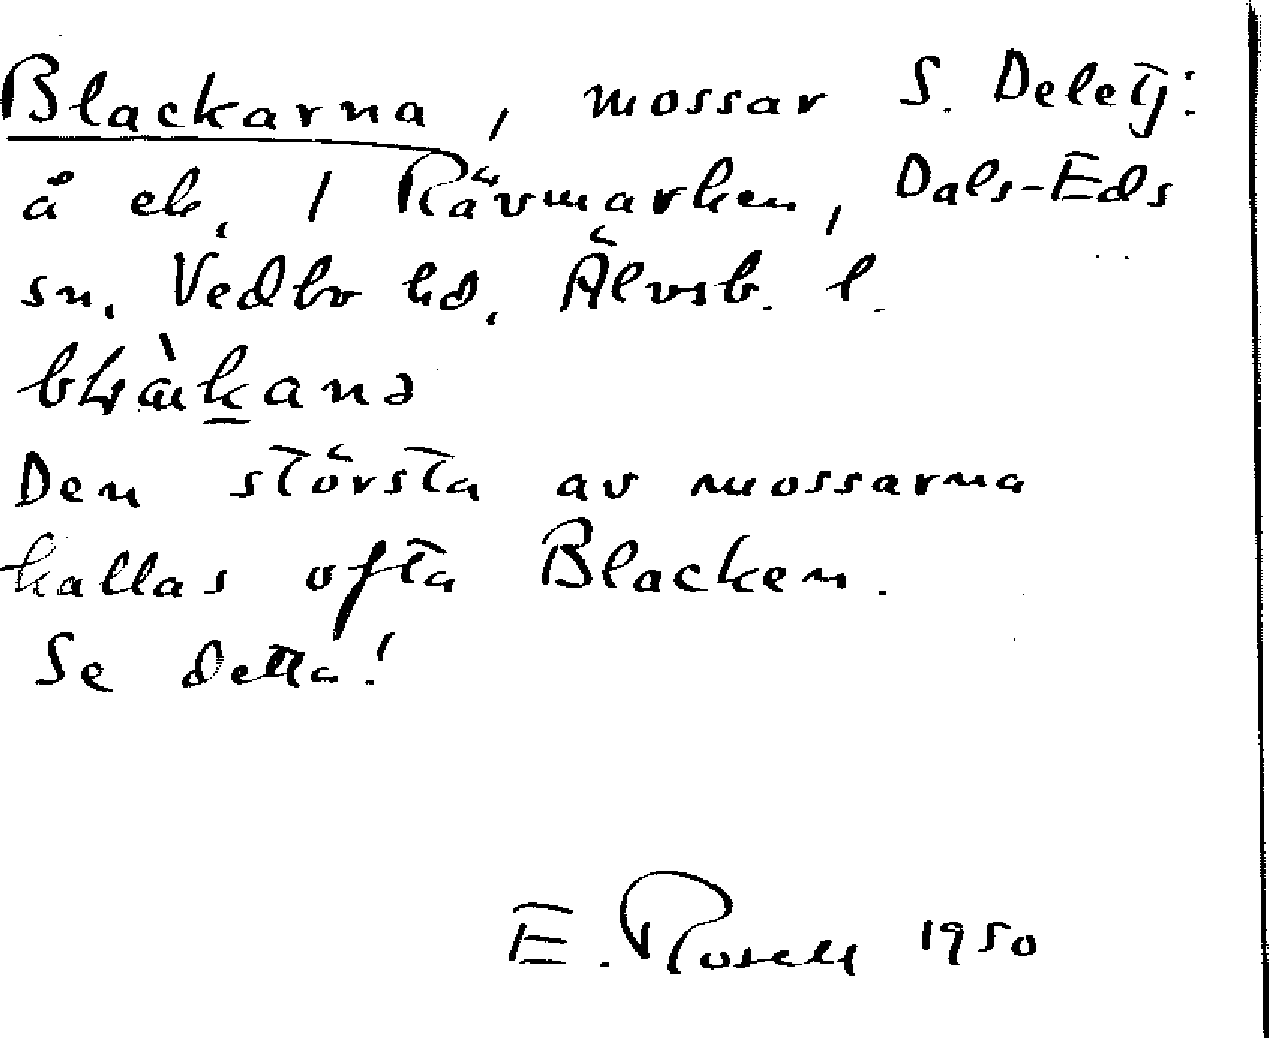 Blackarna, mossar S. Deletj:
å ek. 1 Rävmarken, Dals-Eds
sn. Vedbo hd. Älvsb. l.
Den största av mossarna
kallas ofta Blacken.
Se detta!
E. Rosell 1950